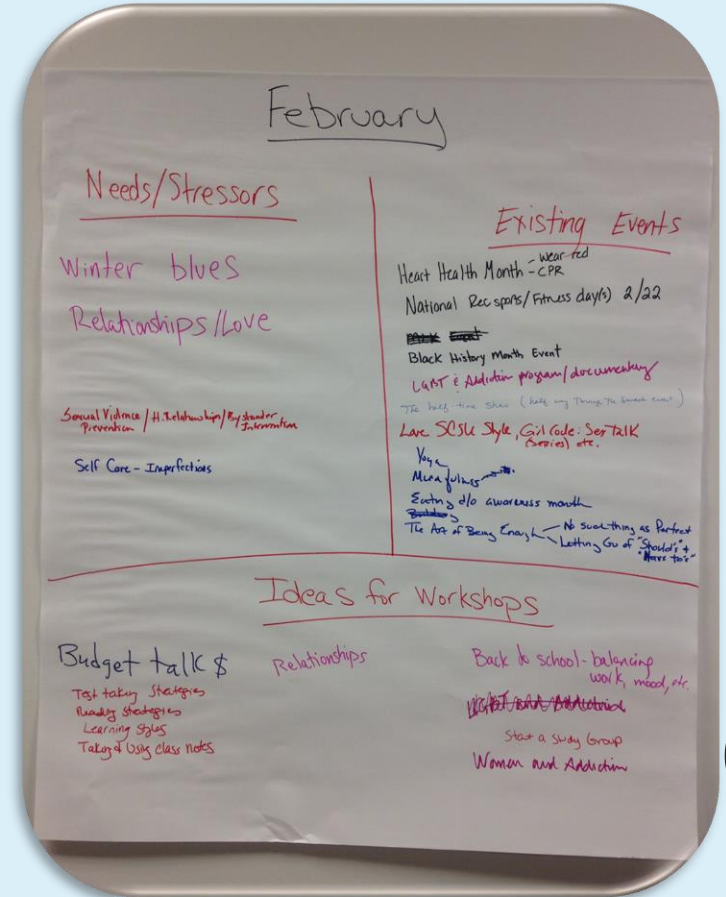 February
Needs/Stressors
Winter blues
Relationships/Love
Sexual Violence / H. Relationships / Bystander
Prevention Intervention
Self Care - Imperfections
Existing Events
Heart Health Month - wear red
- CPR
National Rec sports/Fitness day(s) 2/22
Black History Month Event
LGBT & Addiction program/documentary
The half-time Show (half way Through The Semester event)
Love SCSU Style, Girl Code: Sex Talk
(Series) etc.
Yoga
Mindfulness
Eating d/o awareness month
The Art of Being Enough - No such thing as Perfect
- Letting Go of "Should's" +
"Have to's"
Ideas for Workshops
Budget talk $
Test taking Strategies
Reading Strategies
Learning Styles
Taking & Using class notes
Relationships
Back to school - balancing
work, mood, etc.
LGBT and Addiction
Start a Study Group
Women and Addiction